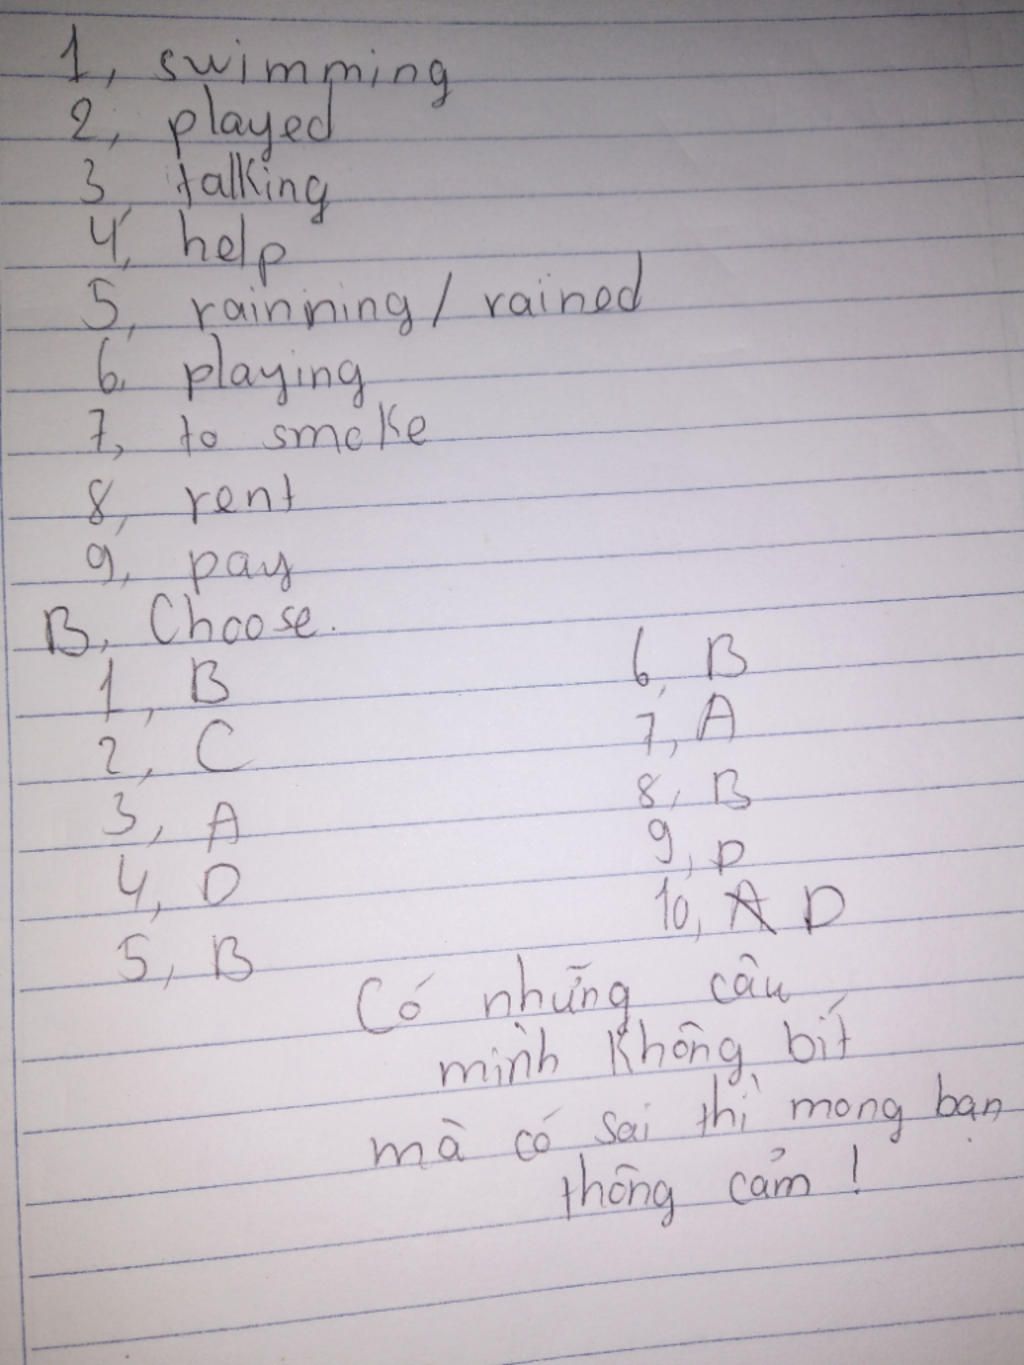 1, swimming
2, played
3, talking
4, help
5, rainning / rained
6, playing
7, to smoke
8, rent
9, pay
B, Choose.
1, B
2, C
3, A
4, D
5, B
6, B
7, A
8, B
9, D
10, A D
Có những câu
mình không bít
mà có sai thì mong bạn
thông cảm !